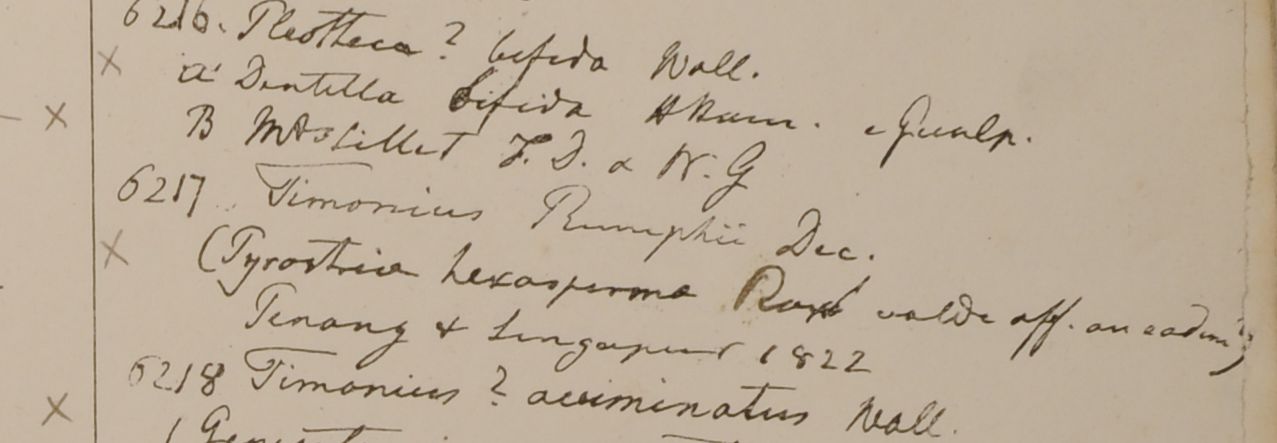 6216. Pleotheca? bifida Wall.
a Dentella bifida HHam. e Gualp.
B Mt Sillet F. D. & W. G
6217 Timonius Rumphii Dec.
(Pyrostria hexasperma Roxb valde aff. an eadem)
Penang & Singapur 1822
6218 Timonius? acuminatus Wall.